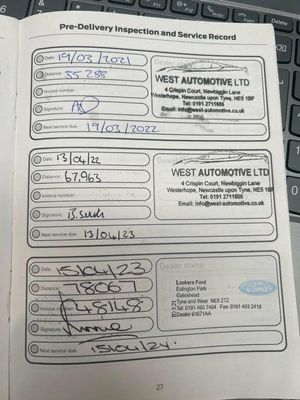 Pre-Delivery Inspection and Service Record
Date: 19/03/2021
Distance: 55288
Invoice number:
Signature:
Next service due: 19/03/2022
WEST AUTOMOTIVE LTD
4 Crispin Court, Newbiggin Lane
Westerhope, Newcastle upon Tyne, NE5 1BF
Tel: 0191 2711605
Email: info@west-automotive.co.uk
Date: 13/04/22
Distance: 67,963
Invoice number:
Signature:
Next service due: 13/04/23
WEST AUTOMOTIVE LTD
4 Crispin Court, Newbiggin Lane
Westerhope, Newcastle upon Tyne, NE5 1BF
Tel: 0191 2711605
Email: info@west-automotive.co.uk
Date: 15/04/23
Distance: 78067
Invoice number: 48148
Signature:
Next service due: 15/04/24.
Dealer stamp
Lookers Ford
Eslington Park
Gateshead
Tyne and Wear NE8 2TZ
Tel: 0191 460 7464 Fax: 0191 493 2418
Dealer 61671AA
Ford
27